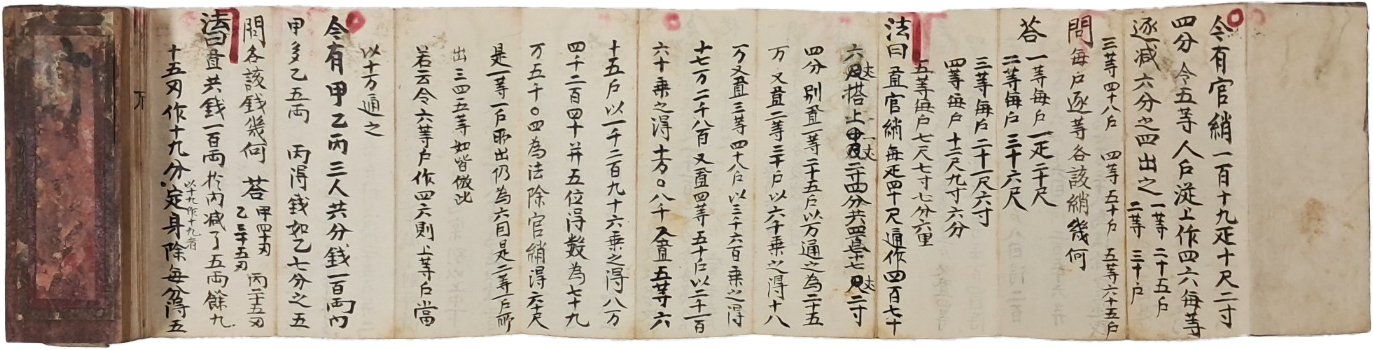 今有官綃一百十九疋十尺二寸
四分令五等人戶從上作四六每等
逐减六分之四出之一等二十五戶
二等三十戶
三等四十八戶 四等五十戶 五等六十五戶
問每戶逐等各該綃幾何
答一等每戶一疋二十尺
二等每戶三十六尺
三等每戶二十一尺六寸
四等每戶十二尺九寸六分
五等每戶七尺七寸七分六重
法曰置官綃每疋四十尺通作四百七十
六丈搭上
四分別置一等二十五戶以万通之為二十五
万又置二等三十戶以六千乘之得十八
万又置三等四十八戶以三千六百乘之得
十七万二千八百又置四等五十戶以二千一百
六十乘之得十万〇八千又置五等六
十五戶以一千二百九十六乘之得八万
四千二百四十并五位得数為七十九
万五千〇四為法除官綃得六十尺
是一等一戶所出仍為六因是二等一戶所
出三四五等如皆倣此
若云令六等戶作四六則上等戶當
以十万通之
今有甲乙丙三人共分錢一百兩內
甲多乙五兩 丙得錢如乙七分之五
問各該錢幾何 答甲四十刄
乙三十五刄 丙二十五刄
法曰置共錢一百兩於內减了五兩餘九
十五刄作十九分以十九作十九者定身除每分得五